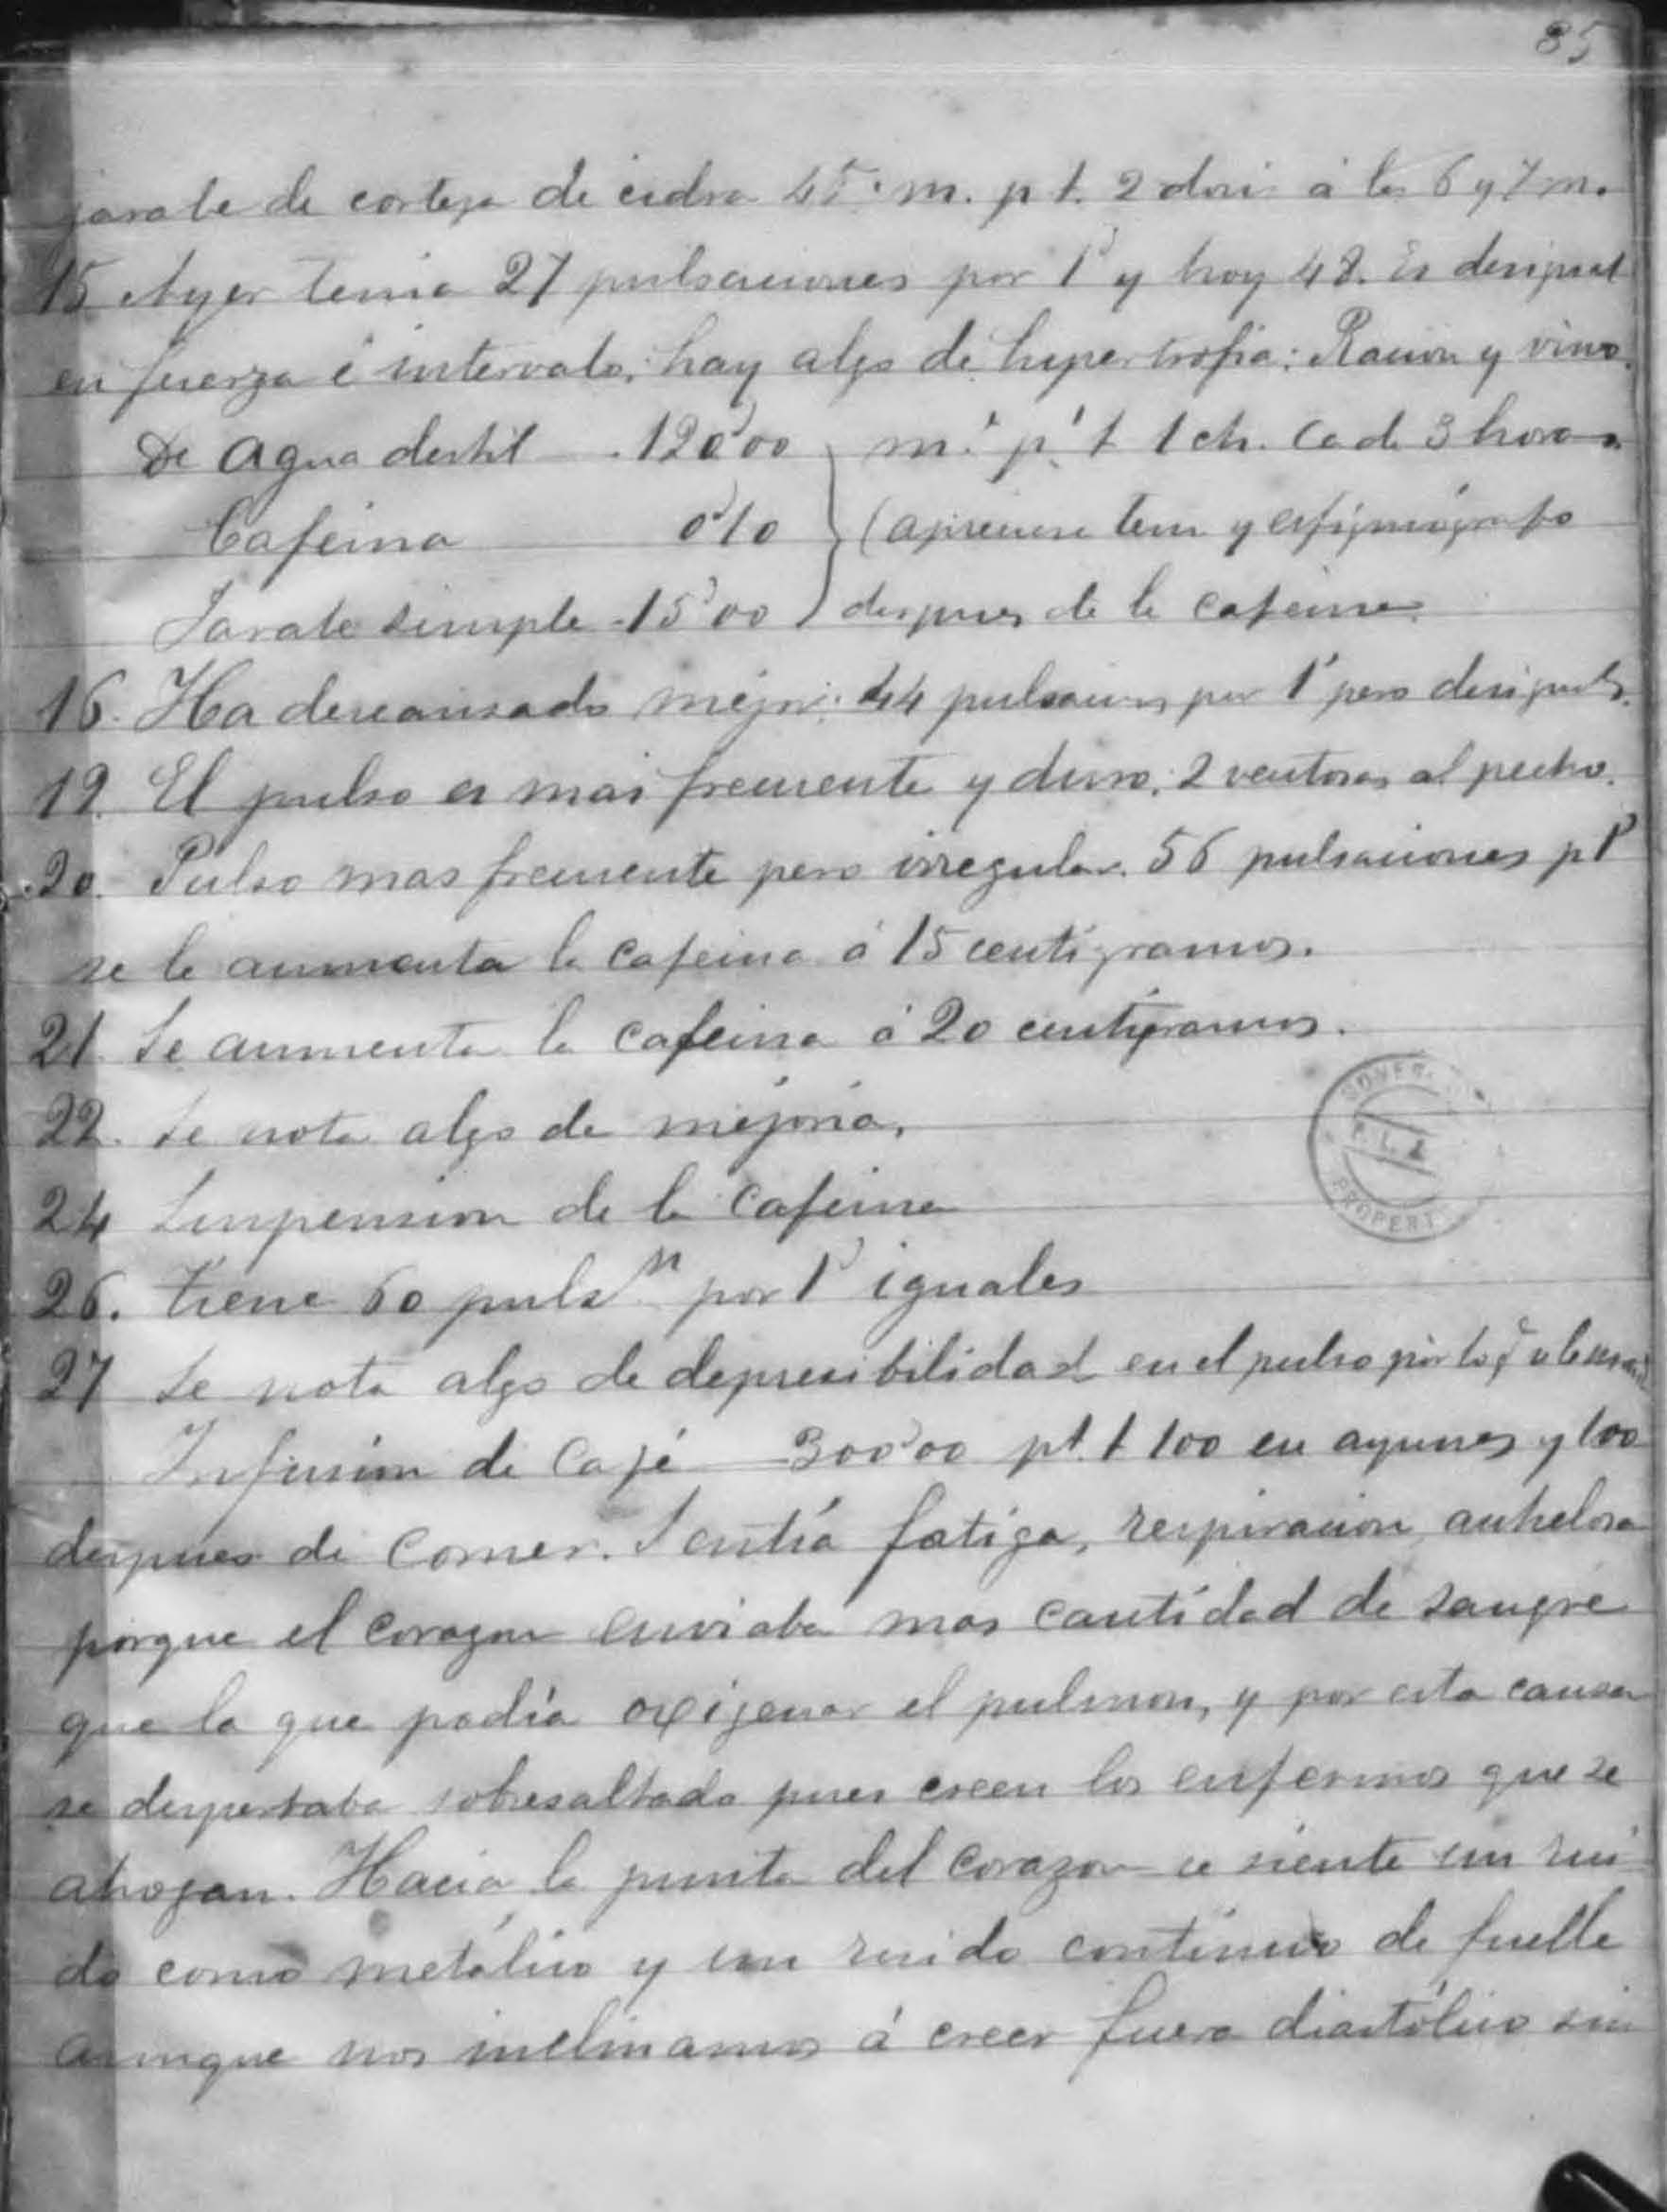 85
jarabe de corteza de cidra 45. m. p t. 2 dosis á las 6 y 7 m.
15 Ayer tenia 27 pulsaciones por 1' y hoy 48. Es desigual
en fuerza é intervalo, hay algo de hipertrofia: Racion y vino.
De Agua destil 120'00 m. p. t 1 ch. cada 3 horas
Cafeina 0'10 (apreciese tem y esfigmógrafo
Jarabe simple 15'00 despues de la cafeina.
16. Ha descansado mejor: 44 pulsaciones por 1' pero desiguales.
19. El pulso es mas frecuente y duro. 2 ventosas al pecho.
20. Pulso mas frecuente pero irregular. 56 pulsaciones p 1'
se le aumenta la cafeina á 15 centigramos.
21. Se aumenta la cafeina á 20 centigramos.
22. Se nota algo de mejoria.
24 Suspension de la cafeina
26. tiene 60 puls.n por 1' iguales
27 Se nota algo de depresibilidad en el pulso por lo q.e
Infusion de Café 300'00 pt. t 100 en ayunas y 100
despues de comer. Sentía fatiga, respiracion anhelosa
porque el corazon enviaba mas cantidad de sangre
que la que podía oxigenar el pulmon, y por esta causa
se despertaba sobresaltado pues creen los enfermos que se
ahogan. Hacia la punta del corazon se siente un rui
do como metálico y un ruido contínuo de fuelle
aunque nos inclinamos á creer fuera diastólico sin
P.L.2
PROPERT